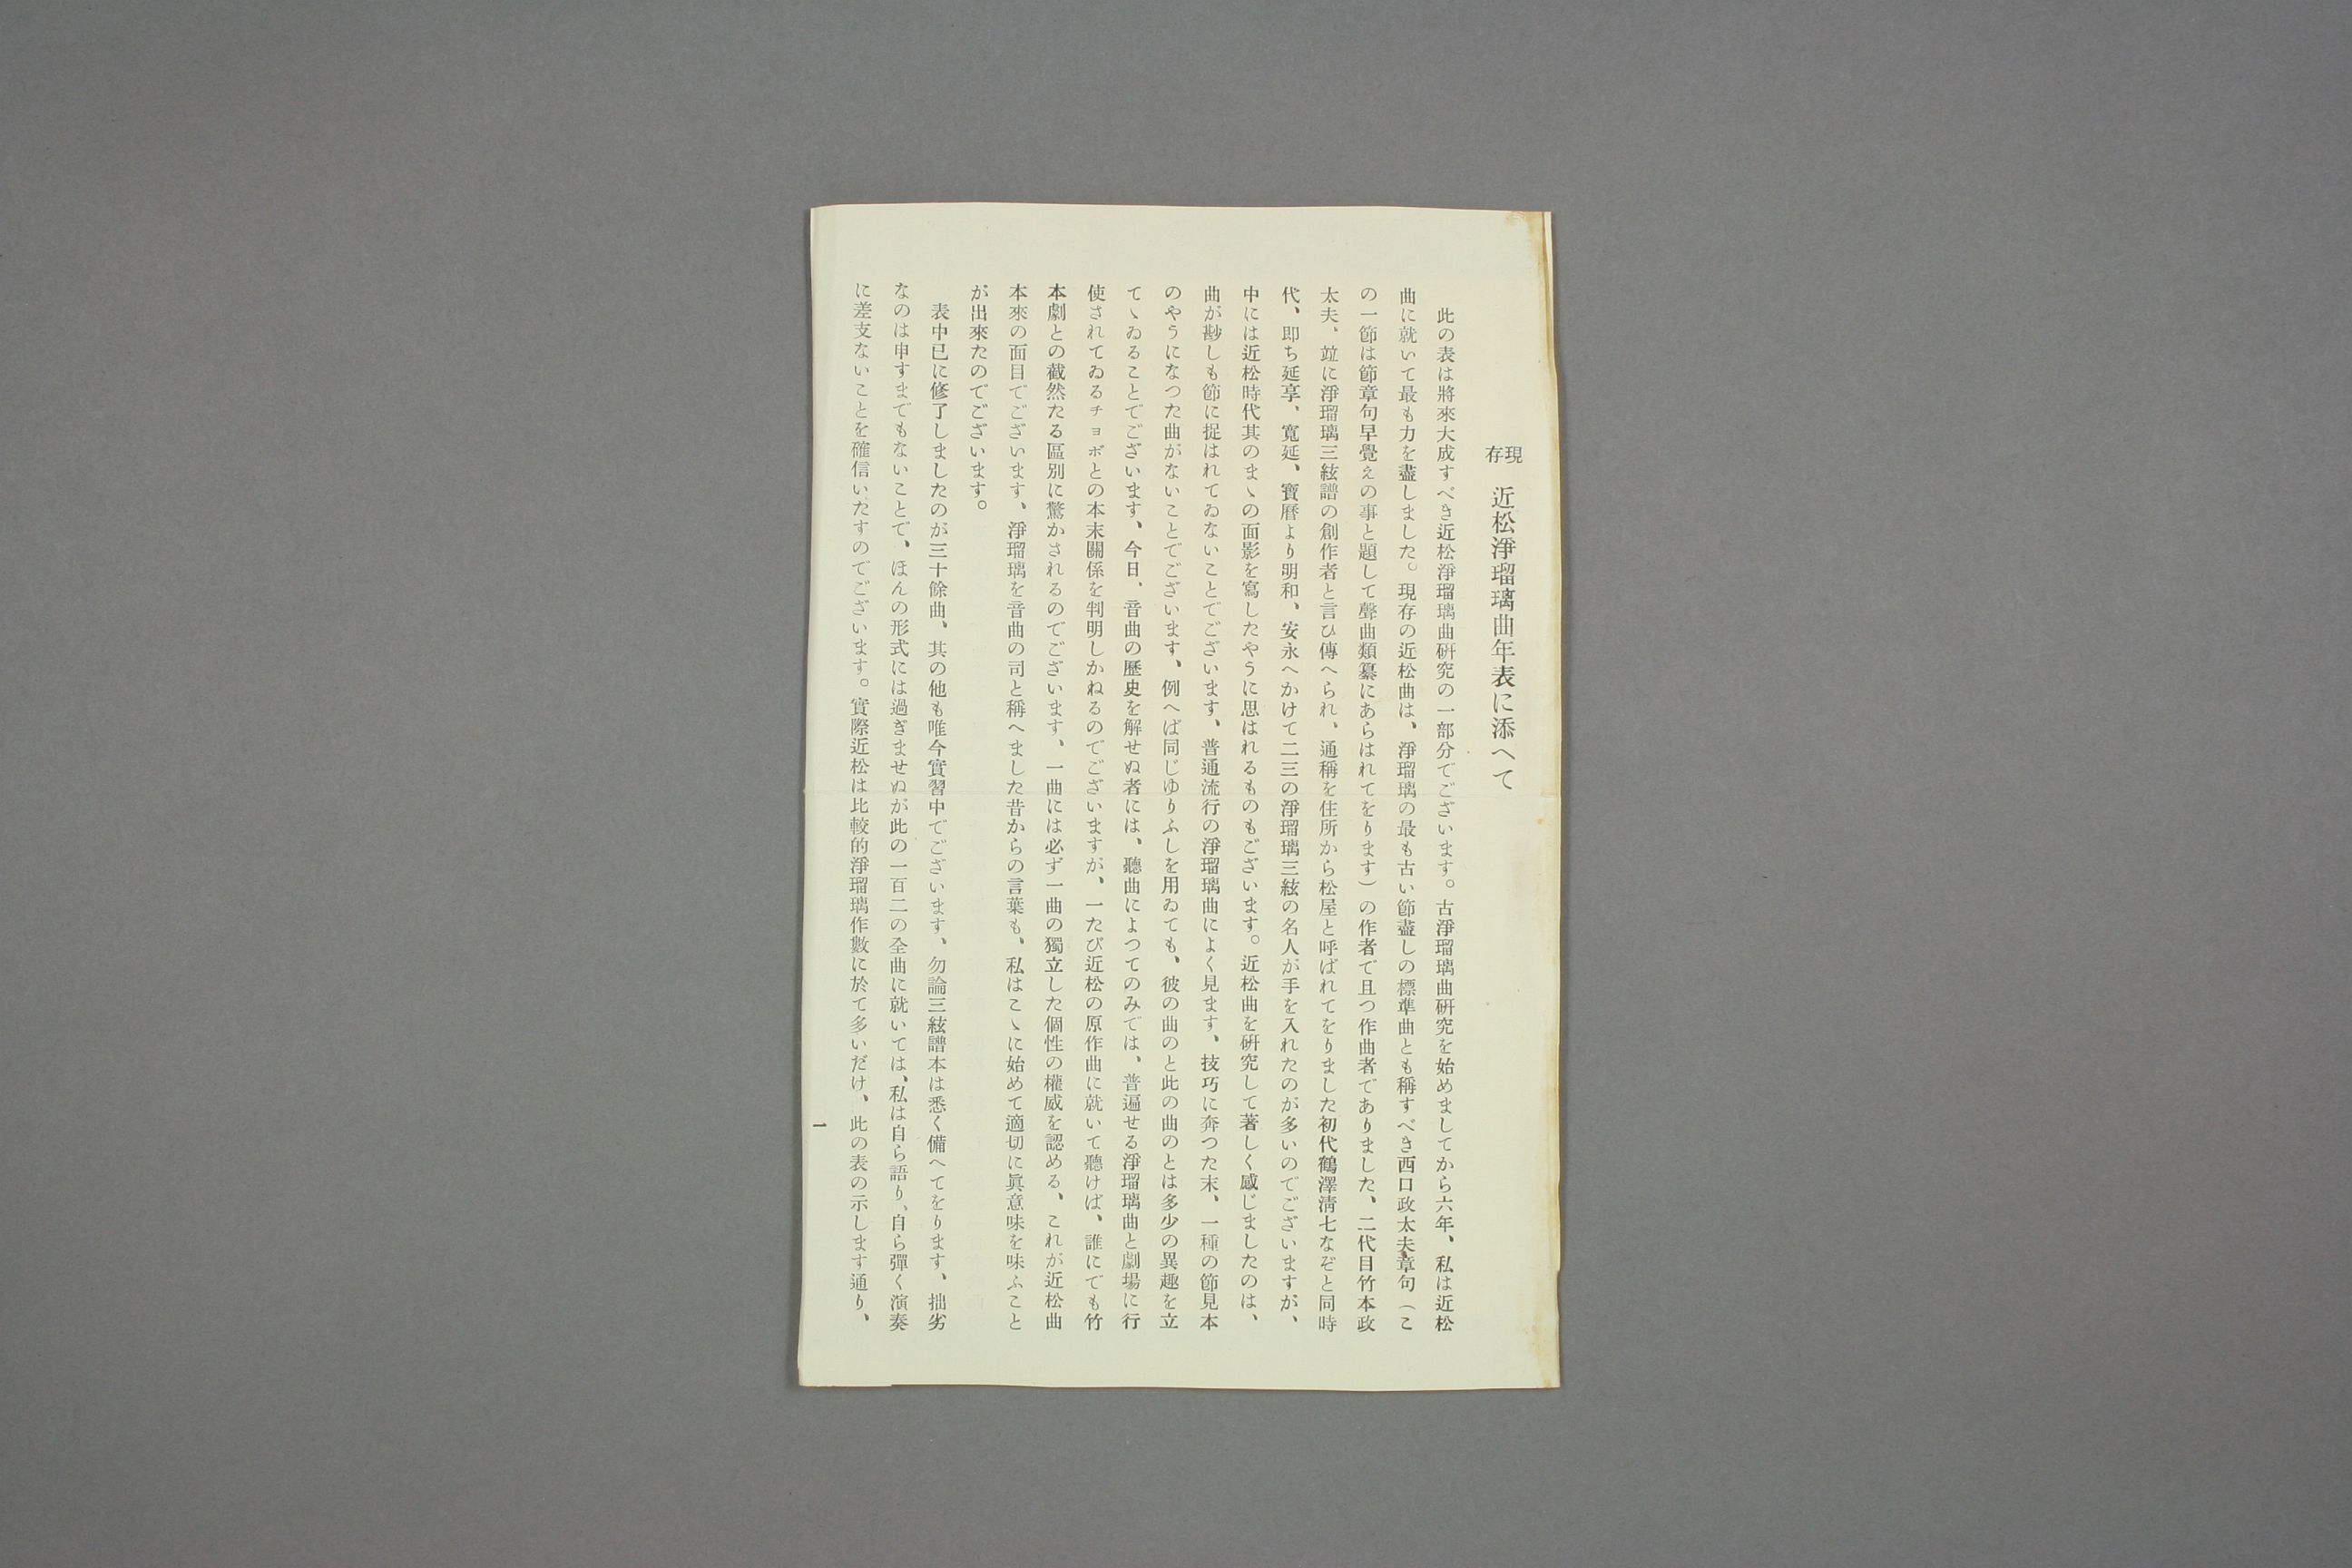 現存 近松淨瑠璃曲年表に添へて
此の表は將來大成すべき近松淨瑠璃曲硏究の一部分でございます。古淨瑠璃曲硏究を始めましてから六年、私は近松
曲に就いて最も力を盡しました。現存の近松曲は、淨瑠璃の最も古い節盡しの標準曲とも稱すべき西口政太夫章句（こ
の一節は節章句早覺えの事と題して聲曲類纂にあらはれてをります）の作者で且つ作曲者でありました、二代目竹本政
太夫、竝に淨瑠璃三絃譜の創作者と言ひ傳へられ、通稱を住所から松屋と呼ばれてをりました初代鶴澤淸七なぞと同時
代、卽ち延享、寬延、寶曆より明和、安永へかけて二三の淨瑠璃三絃の名人が手を入れたのが多いのでございますが、
中には近松時代其のまゝの面影を寫したやうに思はれるものもございます。近松曲を硏究して著しく感じましたのは、
曲が尠しも節に捉はれてゐないことでございます、普通流行の淨瑠璃曲によく見ます、技巧に奔つた末、一種の節見本
のやうになつた曲がないことでございます、例へば同じゆりふしを用ゐても、彼の曲のと此の曲のとは多少の異趣を立
てゝゐることでございます、今日、音曲の歷史を解せぬ者には、聽曲によつてのみでは、普遍せる淨瑠璃曲と劇場に行
使されてゐるチョボとの本末關係を判明しかねるのでございますが、一たび近松の原作曲に就いて聽けば、誰にでも竹
本劇との截然たる區別に驚かされるのでございます、一曲には必ず一曲の獨立した個性の權威を認める、これが近松曲
本來の面目でございます、淨瑠璃を音曲の司と稱へました昔からの言葉も、私はこゝに始めて適切に眞意味を味ふこと
が出來たのでございます。
表中已に修了しましたのが三十餘曲、其の他も唯今實習中でございます、勿論三絃譜本は悉く備へてをります、拙劣
なのは申すまでもないことで、ほんの形式には過ぎませぬが此の一百二の全曲に就いては、私は自ら語り、自ら彈く演奏
に差支ないことを確信いたすのでございます。實際近松は比較的淨瑠璃作數に於て多いだけ、此の表の示します通り、
一